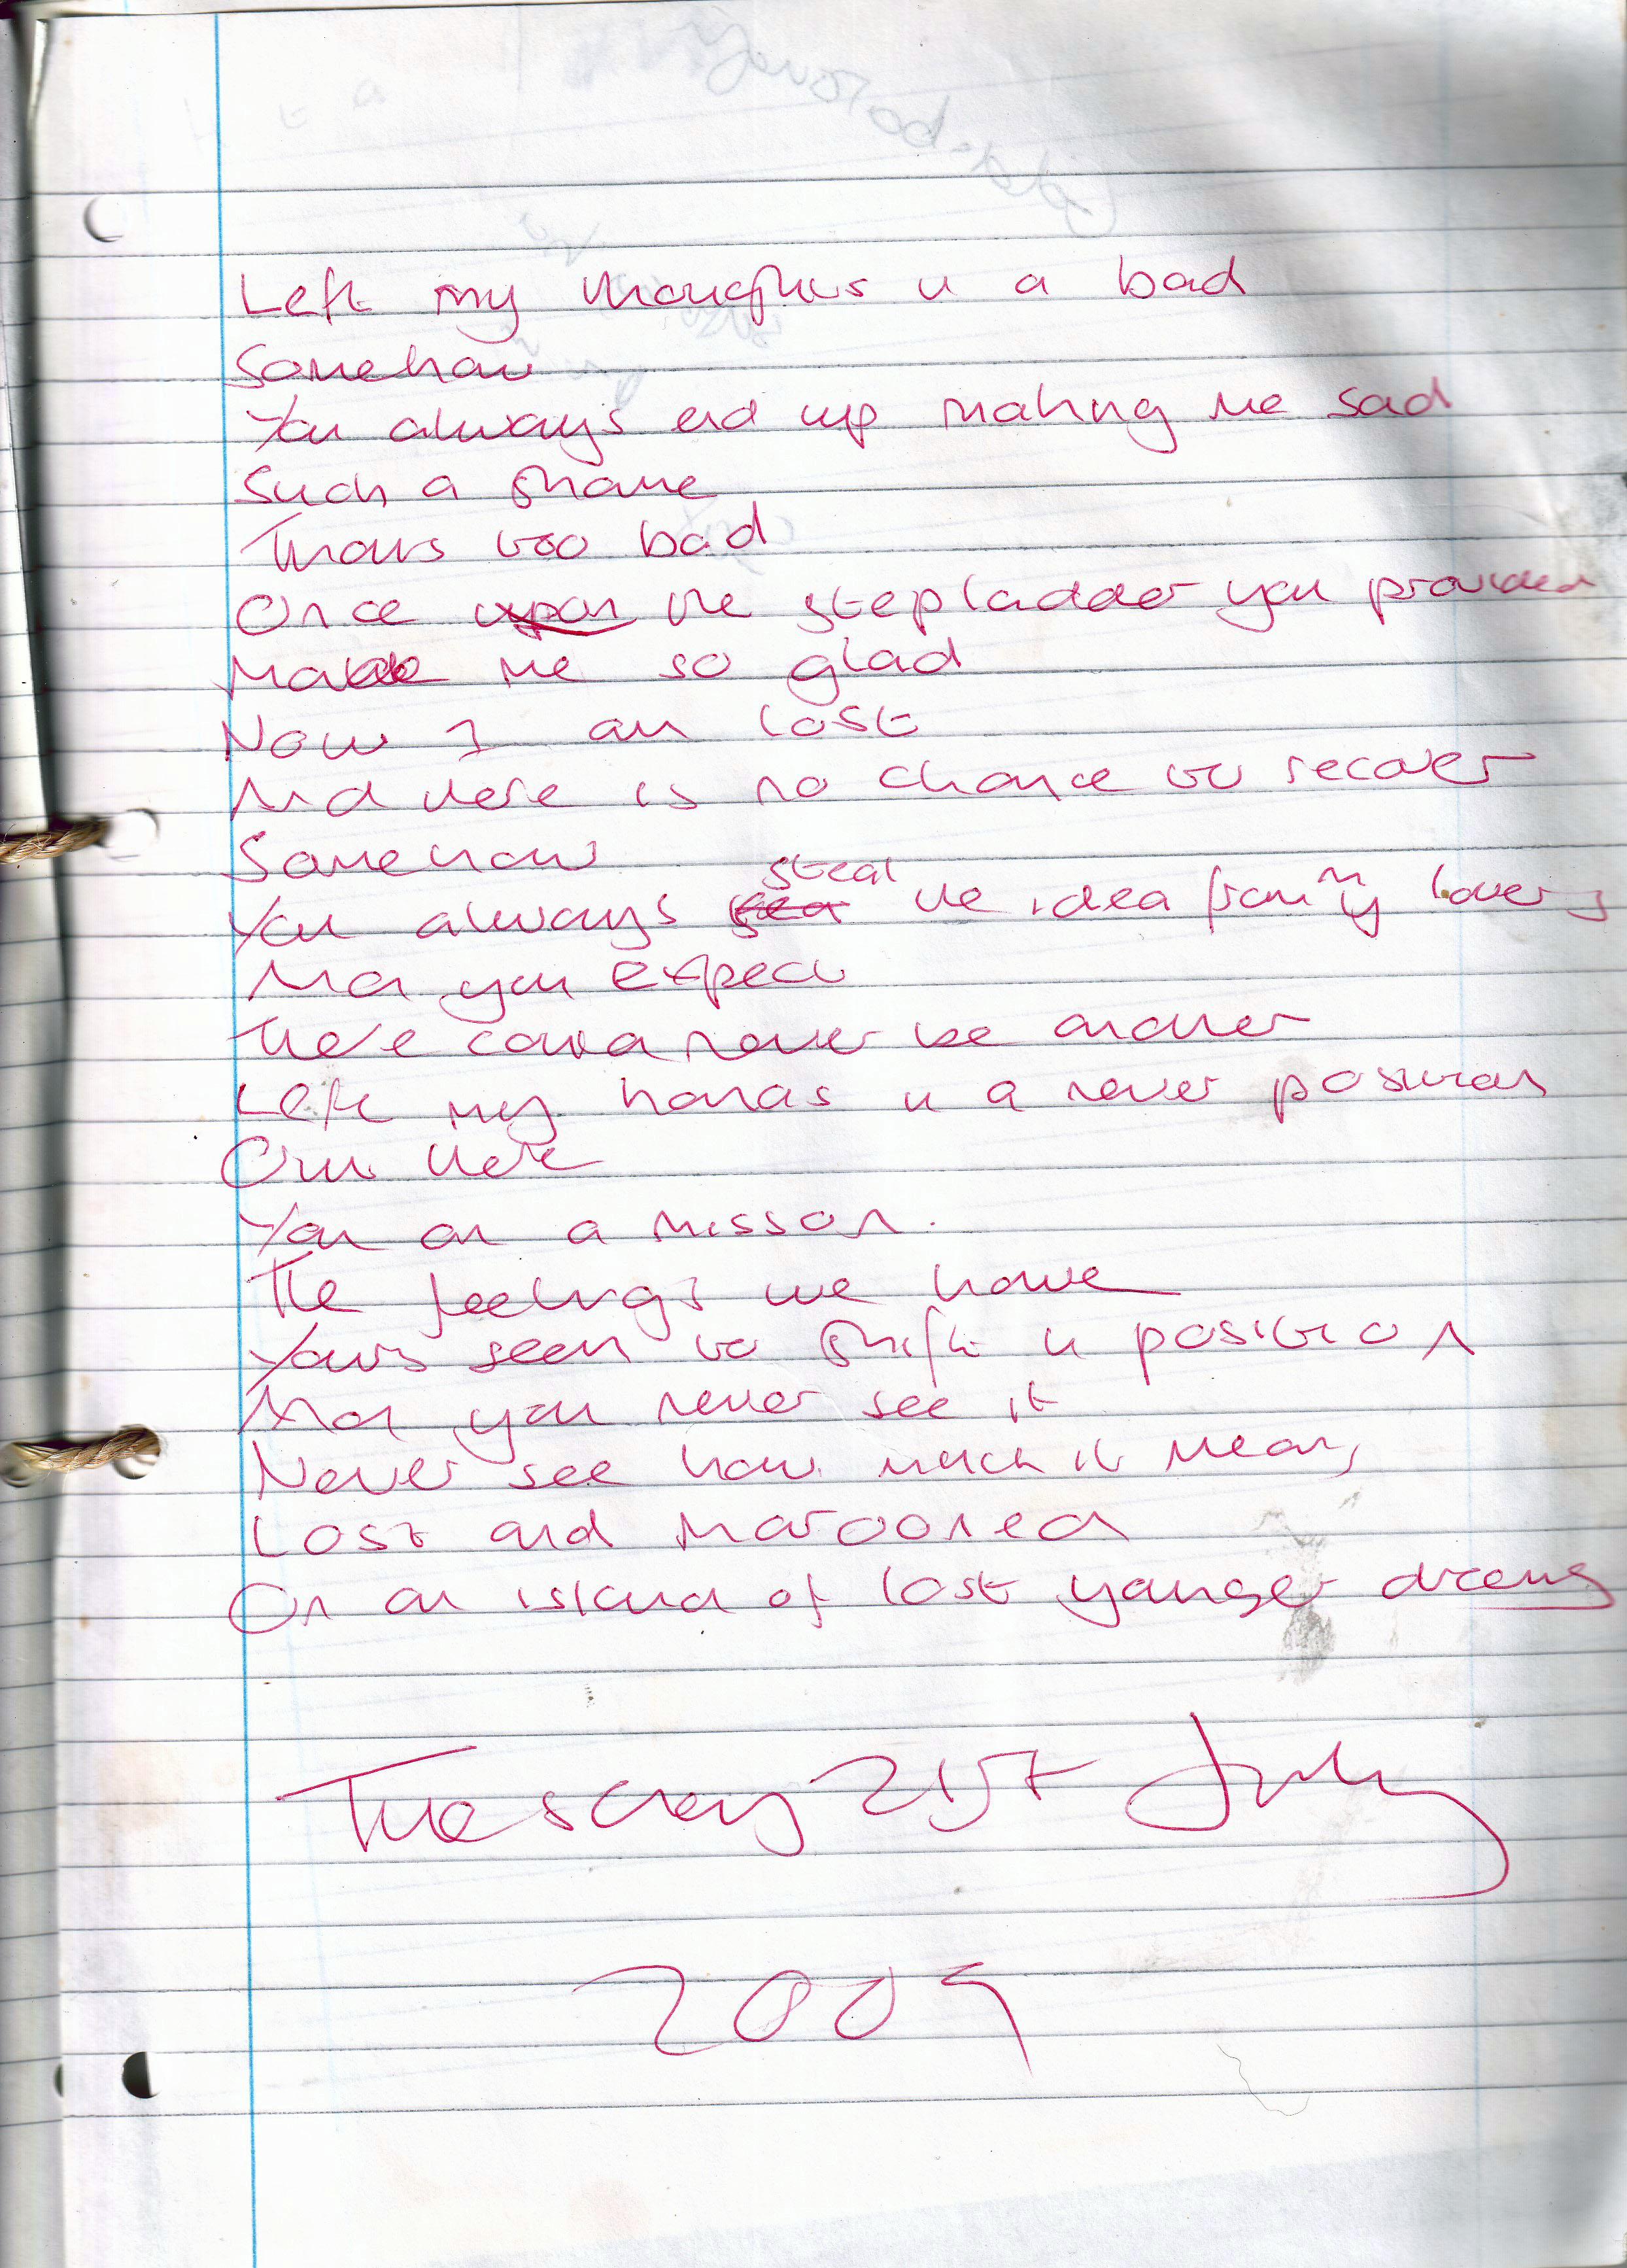 Left my thoughts in a bad
Somehow
You always end up making me sad
Such a shame
Thats too bad
Once upon the stepladder you provided
Made me so glad
Now I am lost
And there is no chance to recover
Somehow
You always steal the idea from my lovers
And you expect
There could never be another
Left my hands in a never position
Out there
You on a mission.
The feelings we have
Yours seem to shift in position
And you never see it
Never see how much it means
Lost and marooned
On an island of lost younger dreams
Tuesday 21st July
2009